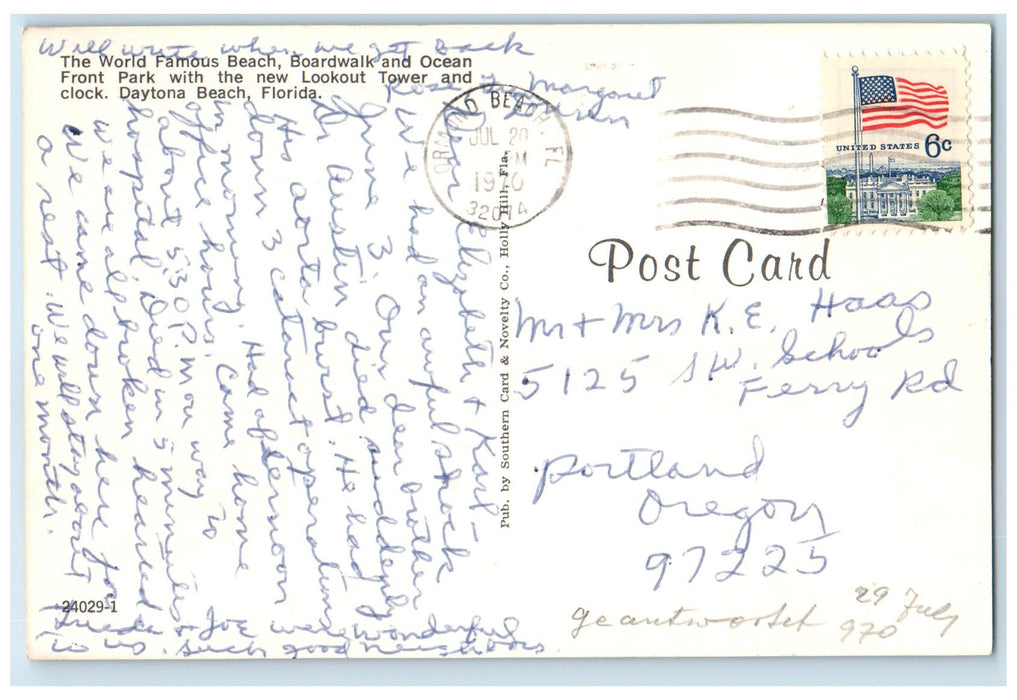 Will write when we get back
The World Famous Beach, Boardwalk and Ocean
Front Park with the new Lookout Tower and
clock. Daytona Beach, Florida.
Rose & Margaret
Dear Elizabeth & Karl-
We had an awful shock
June 3. Our dear brother
Dr Austin died suddenly
His aorta burst. He had
down 3 cataract operations
in morning. Had afternoon
office hours. Came home
about 5:30 P.M on way to
hospital. Died in 5 minutes
We are all broken hearted
We came down here for
a rest. We will stay about
one month.
Frieda & Joe were wonderful
to us. Such good neighbors
24029-1
Pub. by Southern Card & Novelty Co., Holly Hill, Fla.
ORMOND BEACH, FL
JUL 20
PM
1970
32074
UNITED STATES 6c
Post Card
Mr + Mrs K. E. Haas
5125 SW. Schools
Ferry Rd
Portland
Oregon
97225
geantwortet 29 July
970